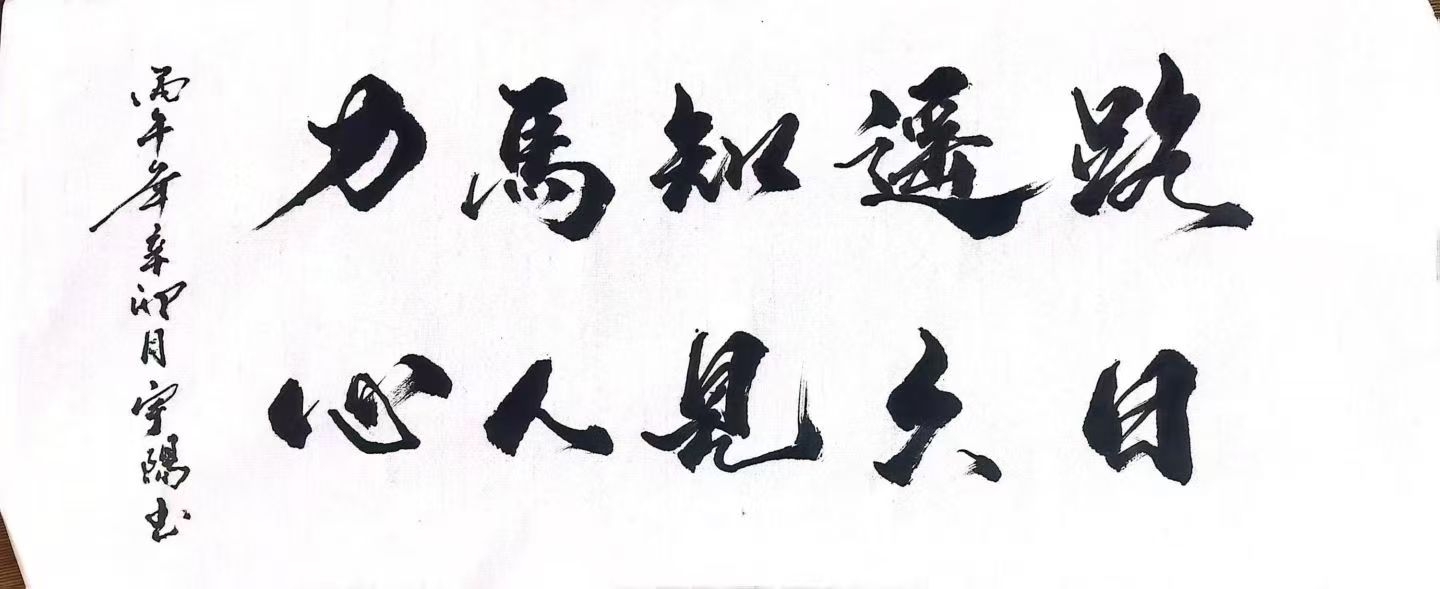 路遥知馬力
日久見人心
丙午年辛卯月宇陽书